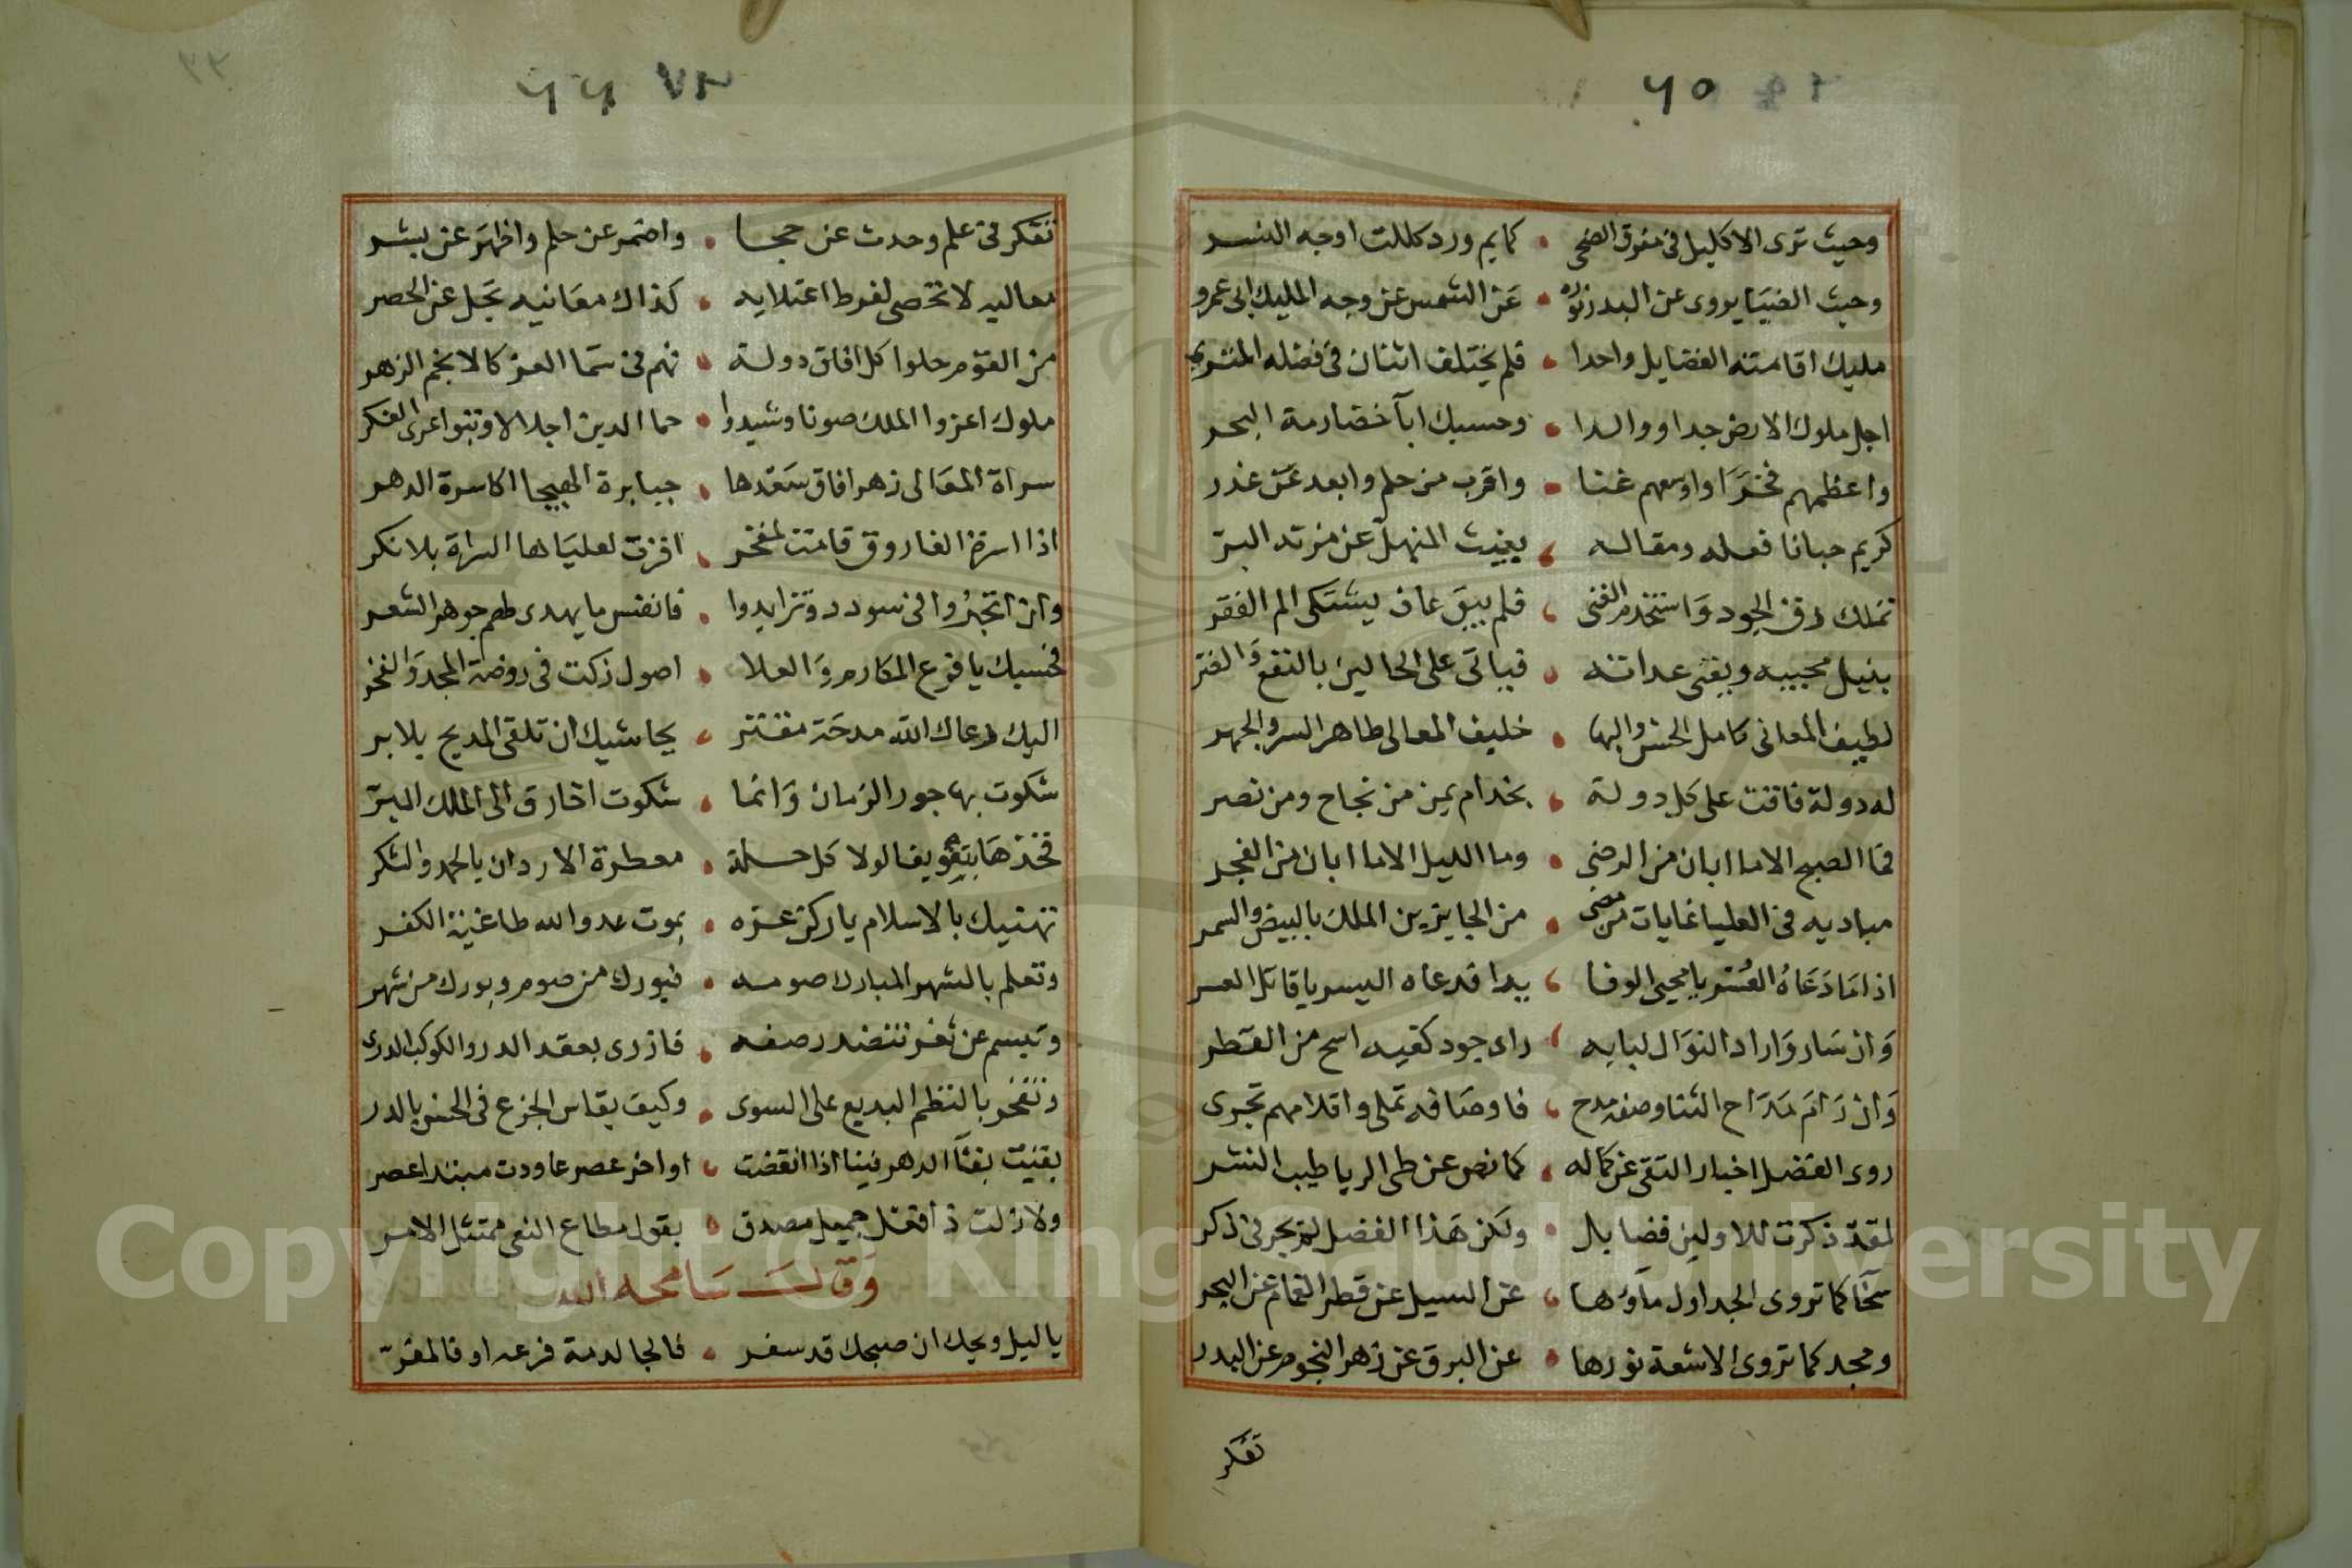 ٦٥
وحيث ترى الاكليل في مفرق الضحى • كمايم ورد كللت اوجه النسر
وحيث الضيا يروى عن البدر نوره • عن الشمس عن وجه المليك ابى عمرو
مليك اقامته الفضايل واحدا • فلم يختلف اثنان في فضله المثرى
اجل ملوك الارض جدا ووالدا • وحسبك ابآ خضارمة البحر
واعظمهم فخرا واوسعهم غنا • واقرب من حلم وابعد عن غدر
كريم حبانا فعله ومقاله • بغيث المنهل عن مزنه البر
تملك رق الجود واستخدم الغنى • فلم يبق عاف يشتكى الم الفقر
ينيل محبيه ويفنى عداته • فياتى على الحالين بالنفع والضر
لطيف المعانى كامل الحسن والبها • خليف المعالى طاهر السر والجهر
له دولة فاقت على كل دولة • بخدام يمن من نجاح ومن نصر
فما الصبح الا ما ابان من الرضى • وما الليل الا ما ابان من الفجر
مباديه في العليا غايات من مضى • من الحايزين الملك بالبيض والسمر
اذا ما دعاه العسر يا محيى الوفا • بدا قد عاه اليسر يا قاتل العسر
وان سار واراد النوال لبابه • راى جود كفيه اسح من القطر
وان رام مداح الثنا وصف مدح • فاوصافه تملى واقلامهم تجرى
روى الفضل اخبار التقى عن كماله • كما نص عن طى الريا طيب النشر
لقد ذكرت للاولين فضايل • ولكن هذا الفضل لم يجر في ذكر
سخا كما تروى الجداول مآوها • عن السيل عن قطر الغمام عن البحر
ومجد كما تروى الاشعة نورها • عن البرق عن زهر النجوم عن البدر
تفكر
٦٦
٣٣
تفكر في علم وحدث عن حجا • واضمر عن حلم واظهر عن بشر
معاليه لا تحصى لفرط اعتلايه • كذاك معانيه تجل عن الحصر
من القوم حلوا كل افاق دولة • فهم في سما العز كالانجم الزهر
ملوك اعزوا الملك صونا وشيدوا • حما الدين اجلالا وبنوا عرى الفكر
سراة المعالى زهر افاق سعدها • جبابرة الهيجا اكاسرة الدهر
اذا اسرة الفاروق قامت لمفخر • اقرت لعلياها السراة بلا نكر
وان اتجروا في سودد وتزايدوا • فانفس ما يهدى لهم جوهر الشعر
فحسبك يا فرع المكارم والعلا • اصول زكت في روضة المجد والفخر
اليك رعاك الله مدحة مفتر • يحاشيك ان تلقى المديح بلا بر
شكوت بها جور الزمان وانما • شكوت اخا رق الى الملك البر
فخذها بتعويقا لولا كل حسلة • معطرة الاردان بالحمد والشكر
تهنيك بالاسلام يا ركن عزه • بموت عدو الله طاغية الكفر
وتعلم بالشهر المبارك صومه • فبورك من صوم وبورك من شهر
وتبسم عن ثغر تنضد رصفه • فازرى بعقد الدر والكوكب الدرى
وتفخر بالنظم البديع على السوى • وكيف يقاس الجزع في الحسن بالدر
بقيت بقا الدهر فينا اذا انقضت • اواخر عصر عاودت مبتدا عصر
ولا زلت ذا فعل جميل مصدق • بقول مطاع النهى ممتثل الامر
وقال سامحه الله
يا ليل ويحك ان صبحك قد سفر • فالجا لدمة فرعه او فالمفر